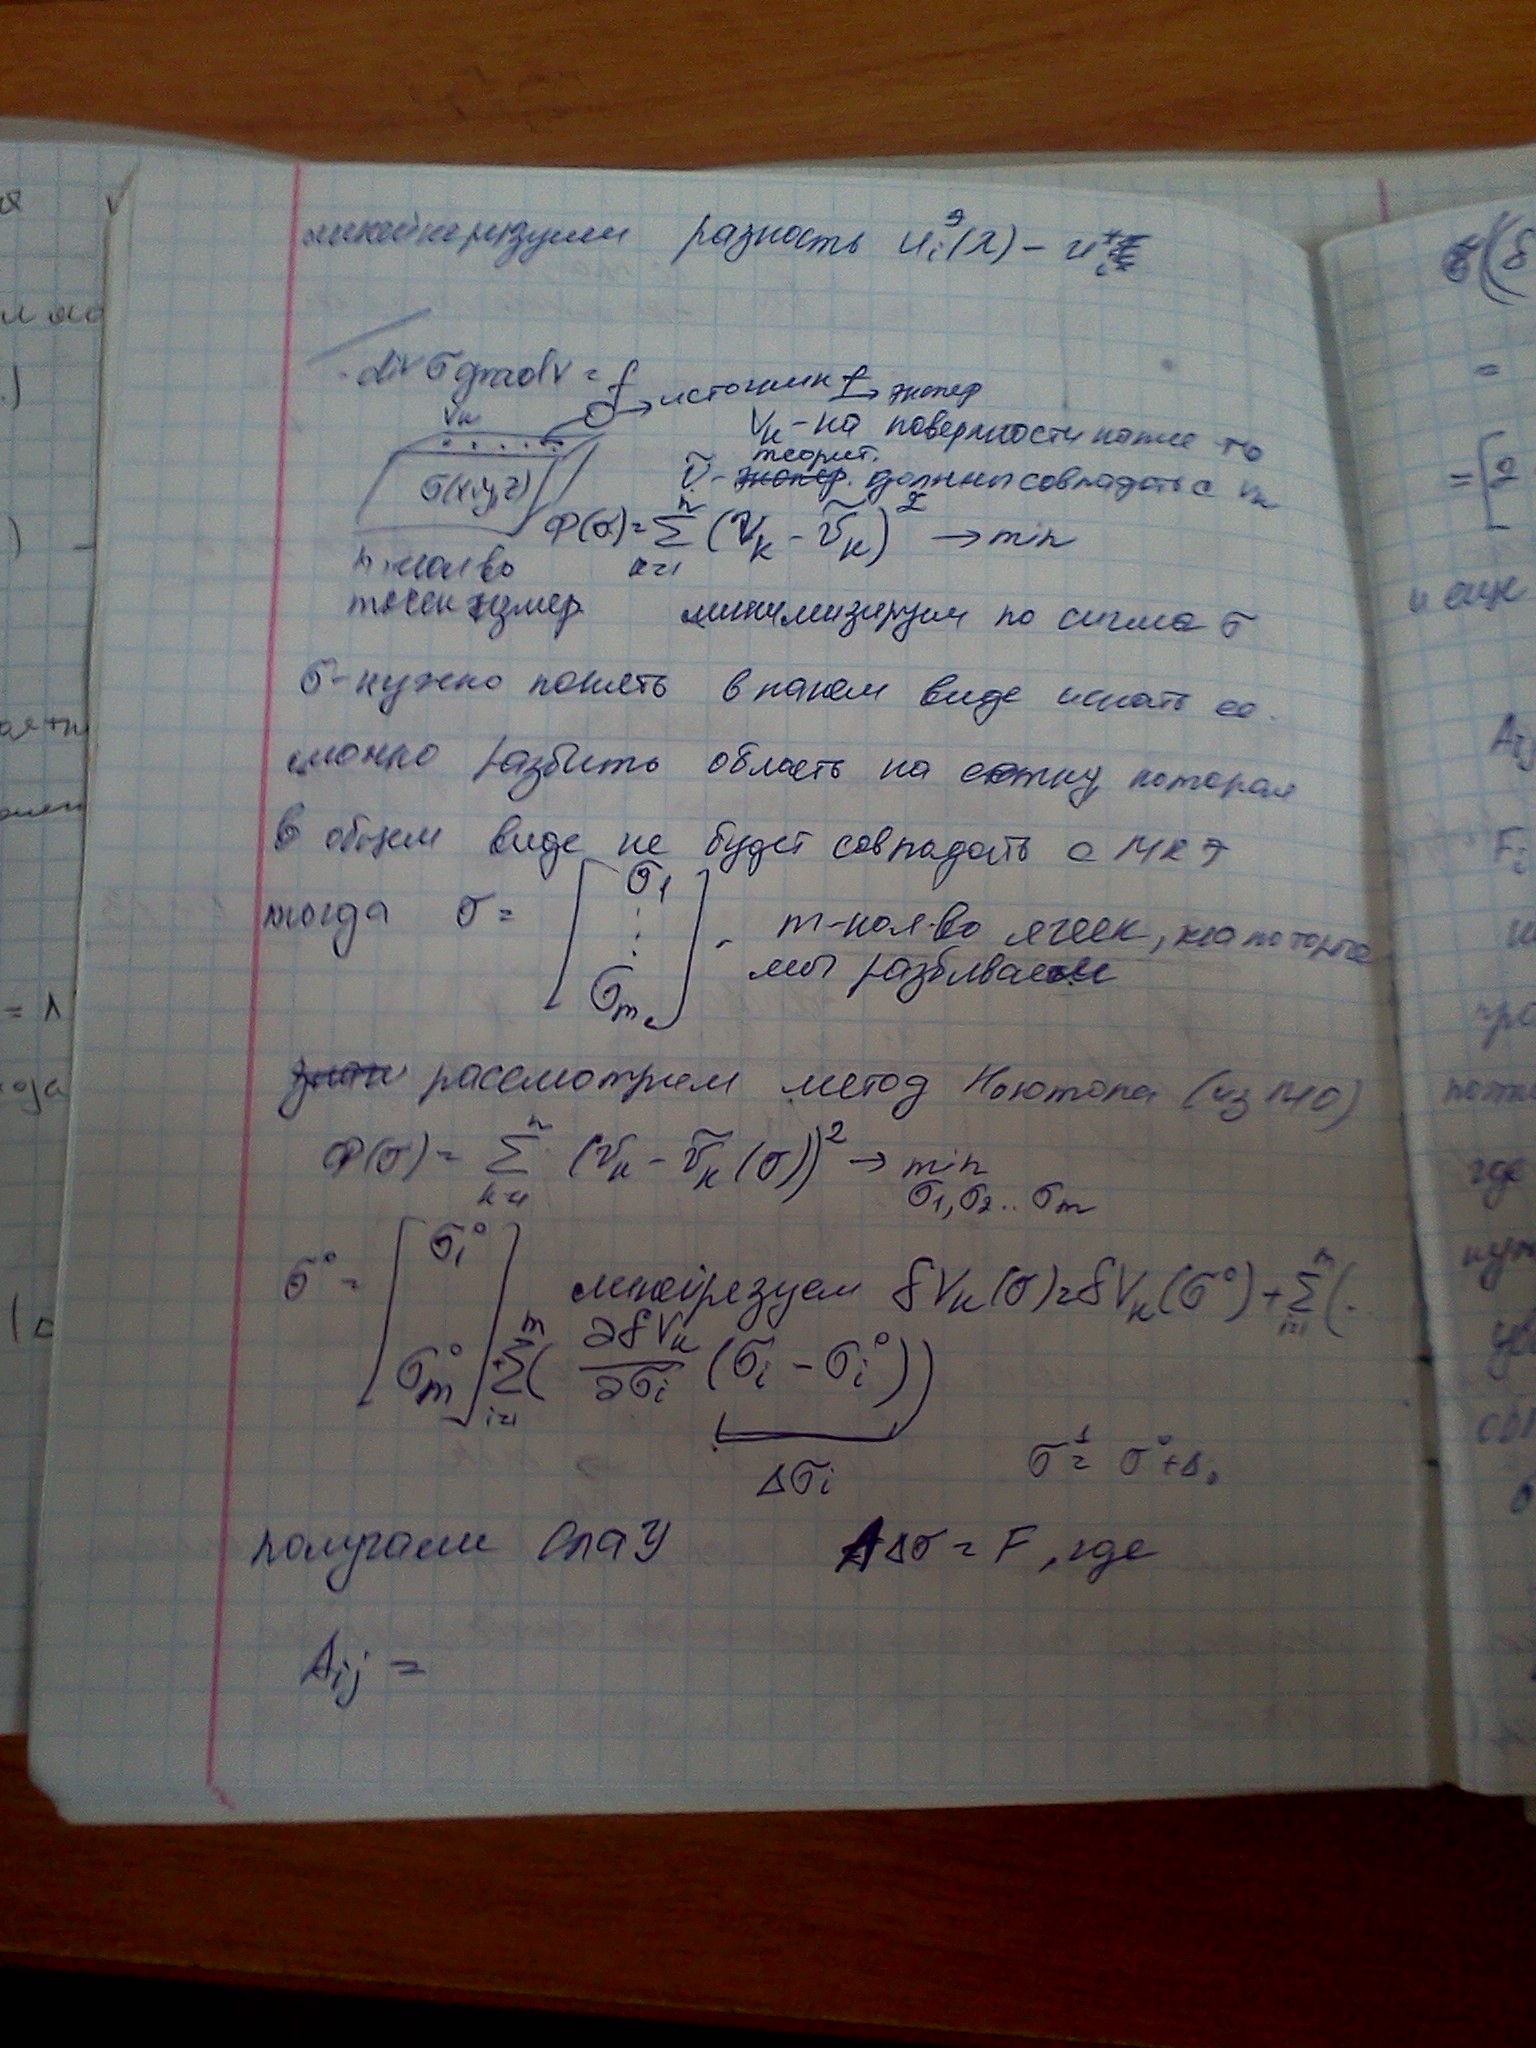 линеаризуем разность u_i^э(λ) - u_i^т
-div σ grad v = f
→ источник f → экспер
V_k
V_k - на поверхности
теорит.
σ(x,y,z)
ṽ - экспер. должны совпадать с v_k
Φ(σ) = Σ_{k=1}^{n} (V_k - ṽ_k)^2 → min
n - кол-во
точек измер.
минимизируем по сигма σ
σ - нужно понять в каком виде искать ее.
можно разбить область на сетку которая
в общем виде не будет совпадать с МКЭ
тогда σ = [σ_1 ⋮ σ_m] - m - кол-во ячеек, на которые
мы разбиваем
рассмотрим метод Ньютона (из МО)
Φ(σ) = Σ_{k=1}^{n} (v_k - ṽ_k(σ))^2 → min
σ_1, σ_2 .. σ_m
σ^0 = [σ_1^0 σ_m^0] линеаризуем δV_k(σ) = δV_k(σ^0) + Σ_{i=1}^{m} (.
+ Σ_{i=1}^{m} ( ∂δV_k / ∂σ_i (σ_i - σ_i^0))
Δσ_i
σ^1 = σ^0 + Δσ
получаем СЛАУ A Δσ = F, где
A_ij =